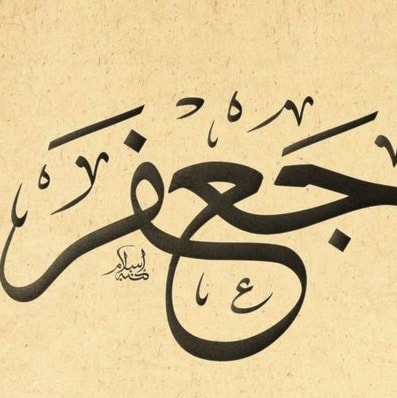 جَعْفَر